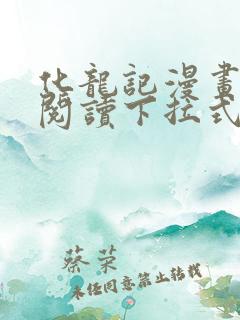 化龍記漫畫
閱讀下拉式
蔡荣
未经同意禁止转载